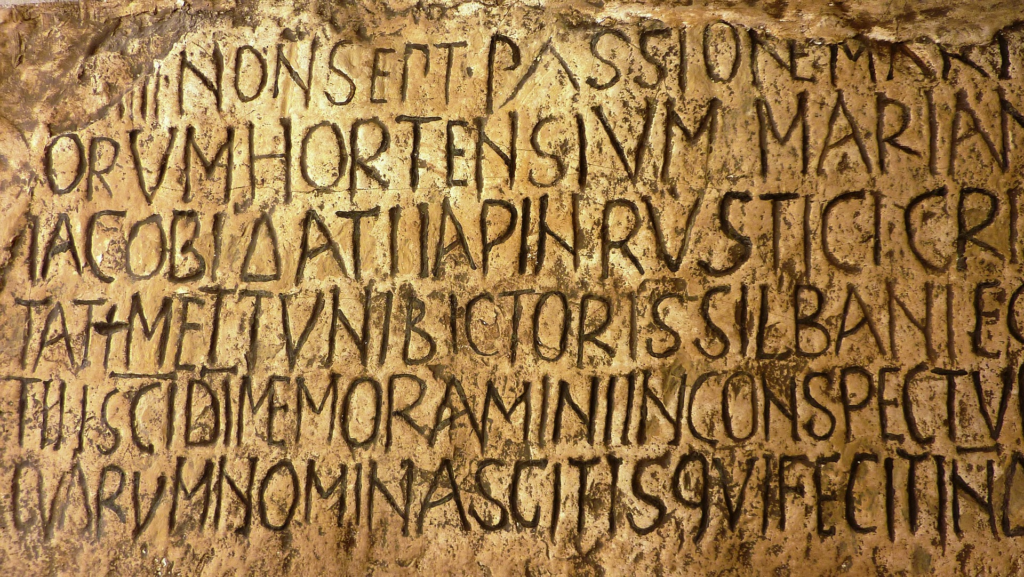 III NON SEPT · PASSIONE MARTI
ORVM HORTENSIVM MARIAN
IACOBI DATI IAPIN RVSTICI CRI
TAT MEITVNI BICTORIS SILBANI EG
TII SCI DI MEMORAMINI IN CONSPECTV
QVARVM NOMINA SCIT IS QVI FECIT IN